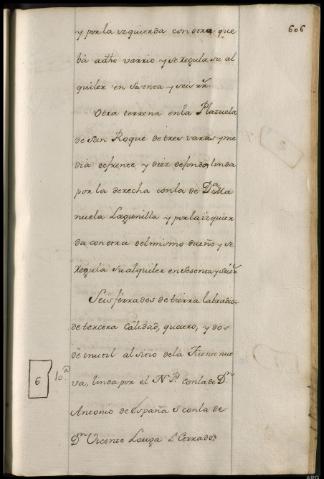 606
y por la izquierda con otra que
bá a dho varrio y se regula su al
quiler en secenta y seis rrs
Otra terrena en la Plazuela
de San Roque de tres varas y me
dia de frente y diez de fondo, linda
por la derecha con la de Da Ma
nuela Lagunilla y por la izquier
da con otra del mismo dueño y se
regula su alquiler en sesenta y seis rrs
Seis ferrados de tierra labradia
de tercera calidad, quatro, y dos
de inutil al sitio de la Fuente nue
6 10a va, linda por el N. Pte con la de Dn
Antonio de España S con la de
Dn Vicente Louza L Cerrados